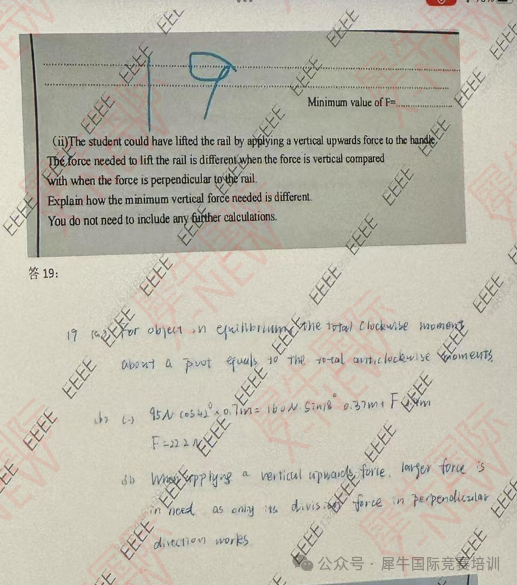 19
Minimum value of F=
(ii)The student could have lifted the rail by applying a vertical upwards force to the handle
The force needed to lift the rail is different when the force is vertical compared
with when the force is perpendicular to the rail.
Explain how the minimum vertical force needed is different.
You do not need to include any further calculations.
答 19：
19 (a) For object in equilibrium, the total clockwise moment
about a pivot equals to the total anticlockwise moments
95N cos42° × 0.7m = 160N Sin18° 0.37m + F
F=22.2N
When applying a vertical upwards force, larger force is
in need as only its division force in perpendicular
direction works
公众号 · 犀牛国际竞赛培训
EEEE
犀牛国际
X-NEW